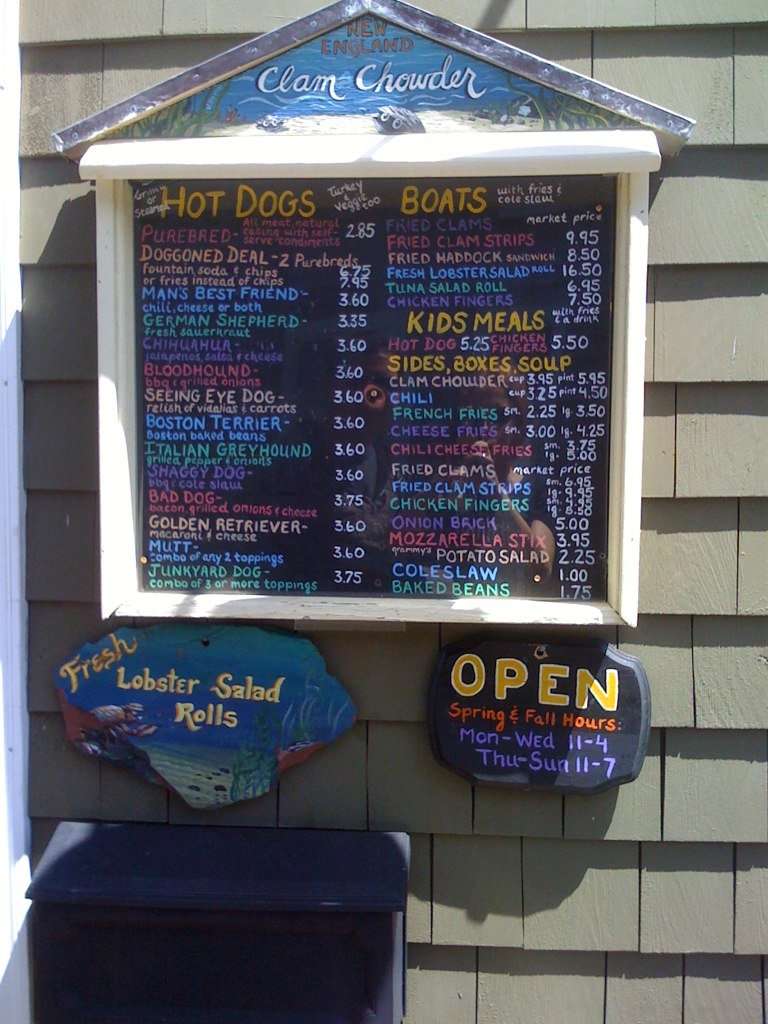 NEW
ENGLAND
Clam Chowder
Grilled or
Steamed
HOT DOGS
Turkey
& Veggie
too
PUREBRED- All meat, natural
casing with self-
serve condiments 2.85
DOGGONED DEAL-2 Purebreds
fountain soda & chips 6.75
or fries instead of chips 7.95
MAN'S BEST FRIEND- 3.60
chili, cheese or both
GERMAN SHEPHERD- 3.35
fresh sauerkraut
CHIHUAHUA- 3.60
jalapenos, salsa & cheese
BLOODHOUND- 3.60
bbq & grilled onions
SEEING EYE DOG- 3.60
relish of vidalias & carrots
BOSTON TERRIER- 3.60
Boston baked beans
ITALIAN GREYHOUND 3.60
grilled pepper & onions
SHAGGY DOG- 3.60
bbq & cole slaw
BAD DOG- 3.75
bacon, grilled onions & cheese
GOLDEN RETRIEVER- 3.60
macaroni & cheese
MUTT- 3.60
combo of any 2 toppings
JUNKYARD DOG- 3.75
combo of 3 or more toppings
BOATS with fries &
cole slaw
FRIED CLAMS market price
FRIED CLAM STRIPS 9.95
FRIED HADDOCK SANDWICH 8.50
FRESH LOBSTER SALAD ROLL 16.50
TUNA SALAD ROLL 6.95
CHICKEN FINGERS 7.50
KIDS MEALS with fries
& a drink
HOT DOG 5.25 CHICKEN FINGERS 5.50
SIDES, BOXES, SOUP
CLAM CHOWDER cup 3.95 pint 5.95
CHILI cup 3.25 pint 4.50
FRENCH FRIES sm. 2.25 lg. 3.50
CHEESE FRIES sm. 3.00 lg. 4.25
CHILI CHEESE FRIES sm. 3.75
lg. 5.00
FRIED CLAMS market price
FRIED CLAM STRIPS sm. 6.95
lg. 9.95
CHICKEN FINGERS sm. 4.95
lg. 8.50
ONION BRICK 5.00
MOZZARELLA STIX 3.95
grammy's POTATO SALAD 2.25
COLESLAW 1.00
BAKED BEANS 1.75
Fresh
Lobster Salad
Rolls
OPEN
Spring & Fall Hours:
Mon-Wed 11-4
Thu-Sun 11-7